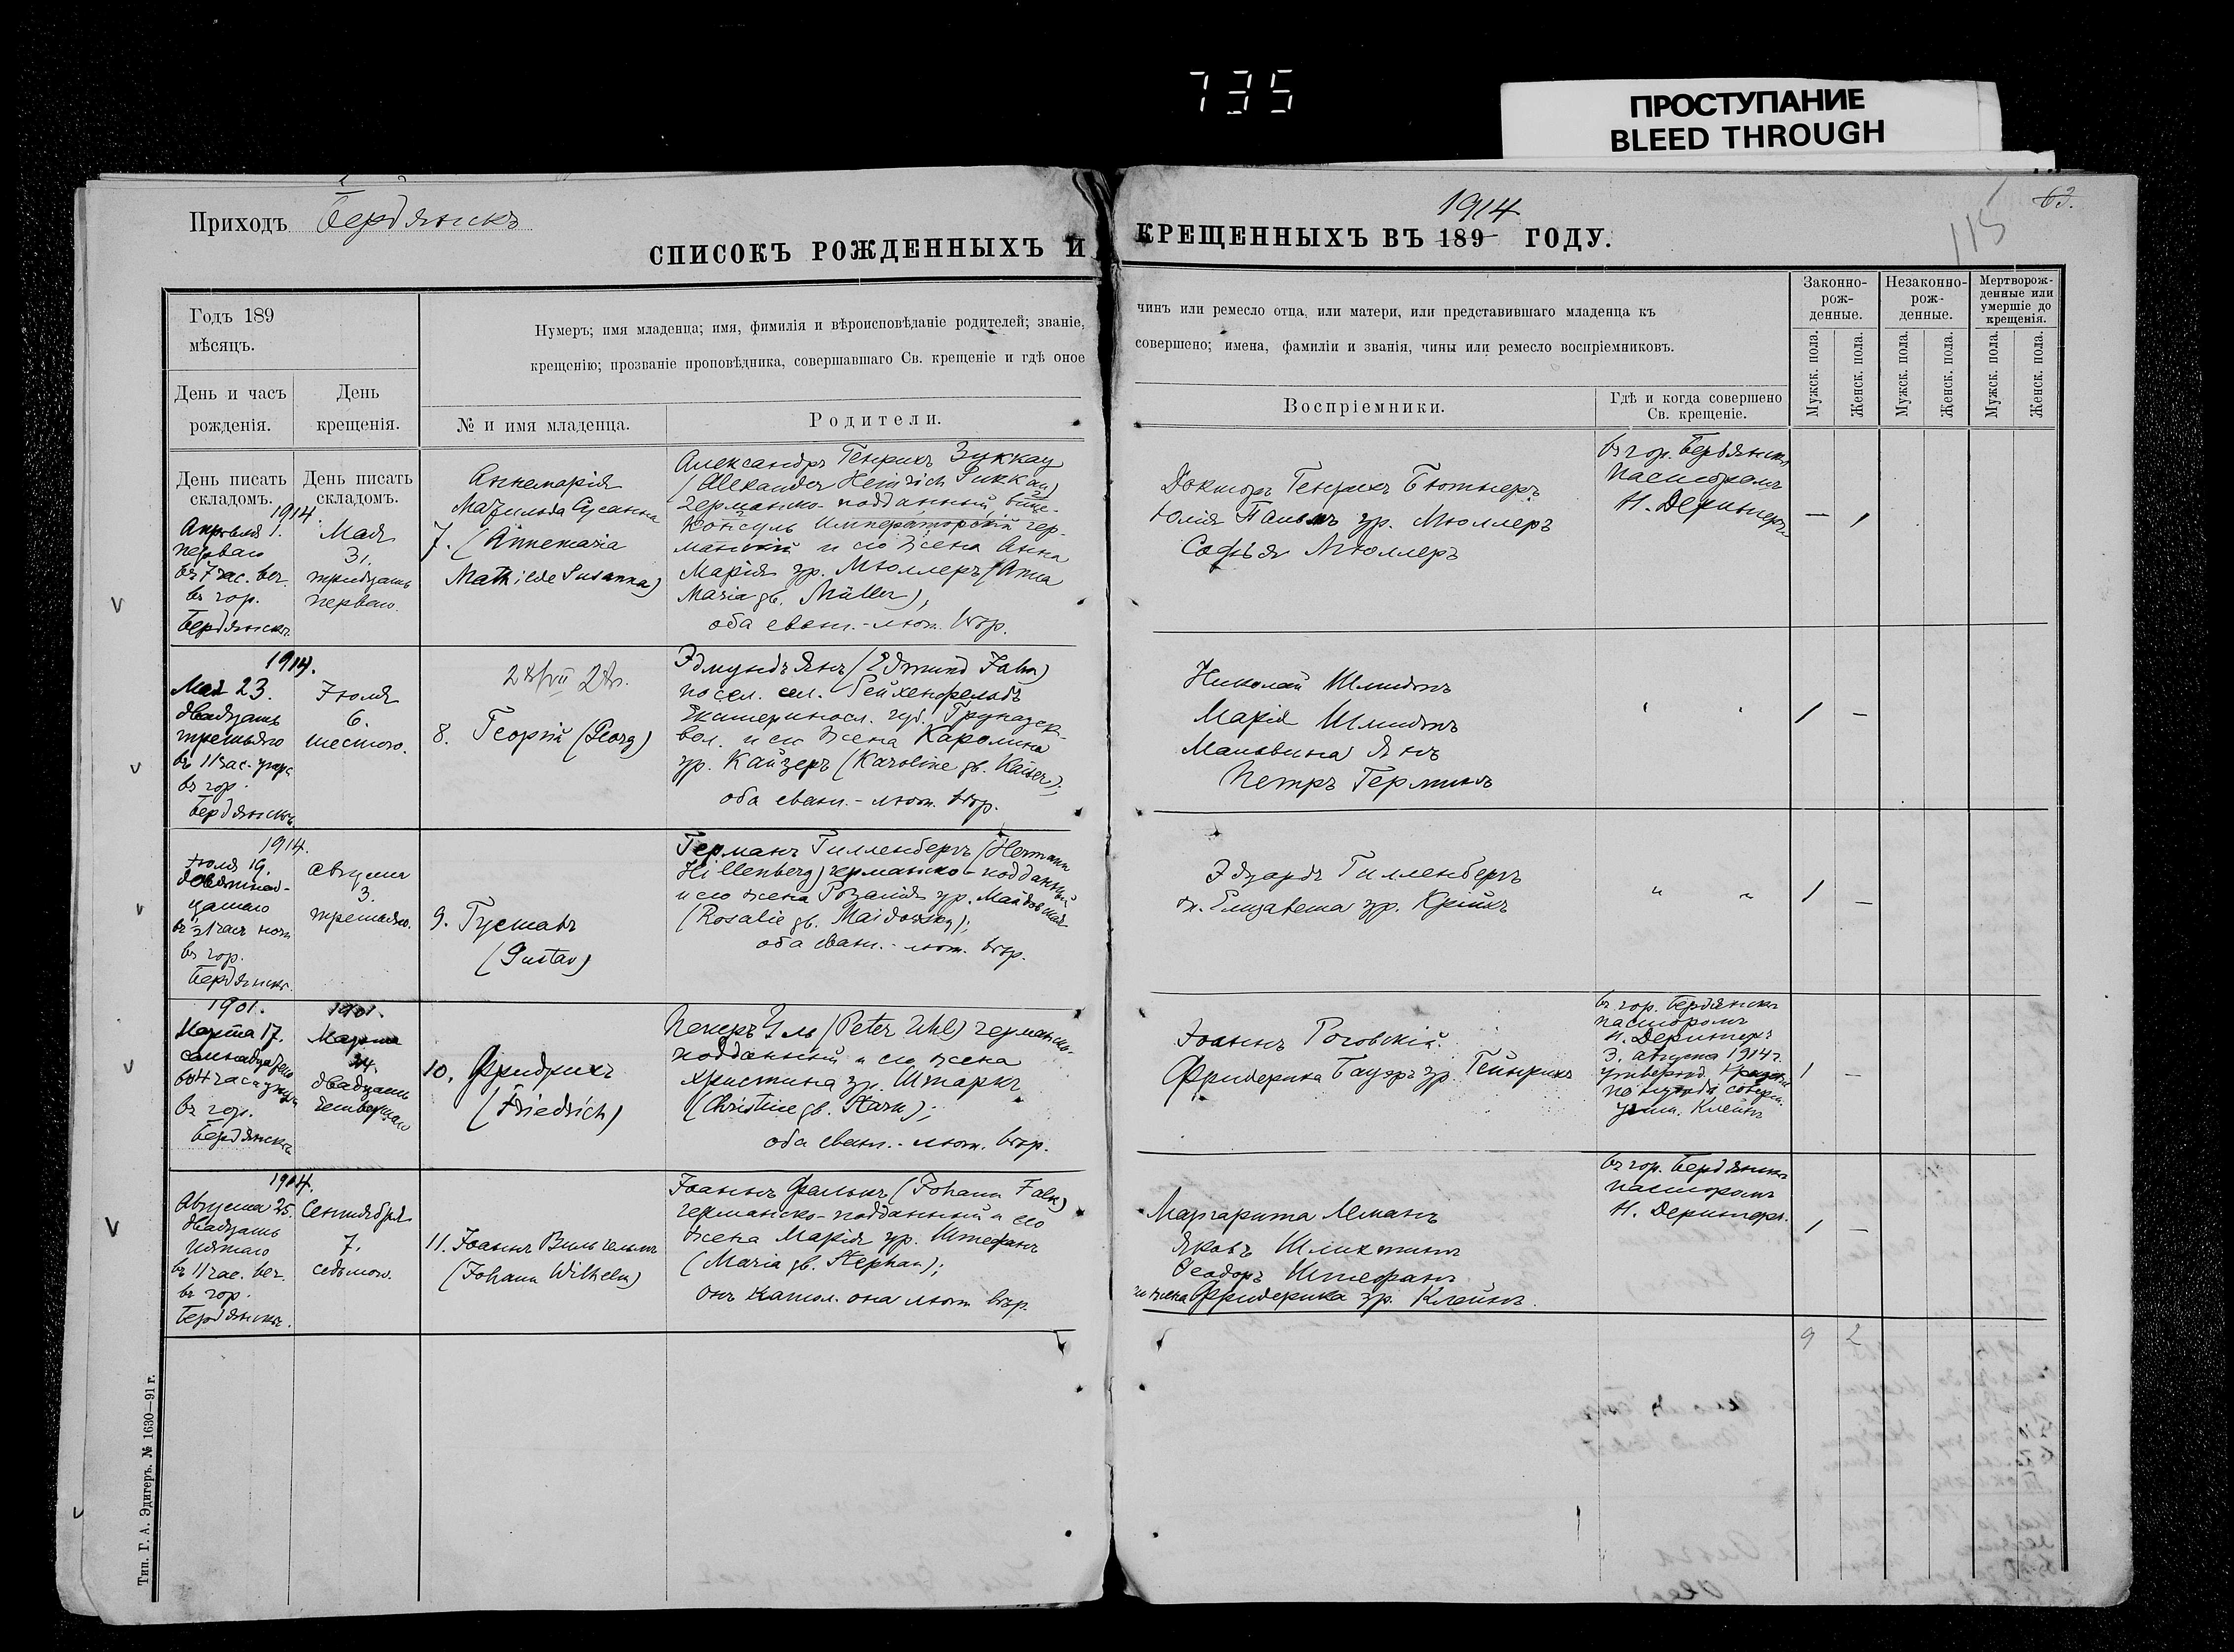 735
ПРОСТУПАНИЕ
BLEED THROUGH
Приходъ Бердянскъ
1914
115
63.
СПИСОКЪ РОЖДЕННЫХЪ И КРЕЩЕННЫХЪ ВЪ 189 ГОДУ.
Годъ 189
мѣсяцъ.
День и часъ
рожденія.
День
крещенія.
Нумеръ; имя младенца; имя, фимилія и вѣроисповѣданіе родителей; званіе,
крещенію; прозваніе проповѣдника, совершавшаго Св. крещеніе и гдѣ оное
№ и имя младенца.
Родители.
чинъ или ремесло отца, или матери, или представившаго младенца къ
совершено; имена, фамиліи и званія, чины или ремесло воспріемниковъ.
Воспріемники.
Гдѣ и когда совершено
Св. крещеніе.
Законно-
рож-
денные.
Незаконно-
рож-
денные.
Мертворож-
денные или
умершіе до
крещенія.
Мужск. пола.
Женск. пола.
Мужск. пола.
Женск. пола.
Мужск. пола.
Женск. пола.
День писать
складомъ.
День писать
складомъ.
1914.
Апрѣля 1.
перваго
въ 7 час. веч.
въ гор.
Бердянскѣ
Мая
31.
тридцать
перваго.
7.
Аннемарія
Матильда Сусанна
(Annemaria
Mathilde Susanna)
Александръ Генрихъ Зуккау
(Alexander Heinrich Sukkau)
германско-подданный, вице-
Консулъ Императорскій гер-
манскій и его жена Анна
Марія ур. Мюллеръ (Anna
Maria gb. Müller),
оба еванг.-лют. вѣр.
Докторъ Генрихъ Бютнеръ
Юлія ур. Мюллеръ
Софья Мюллеръ
въ гор. Бердянскѣ
пасторомъ
Н. Дерингеръ
— 1
1914.
Мая 23.
двадцать
третьяго
въ 11 час. утра
въ гор.
Бердянскѣ
Іюля
6.
шестого.
8. Георгій (Georg)
Эдмундъ Янъ (Edmund Jahn)
посел. сел. Рейхенфельдъ
Екатериносл. губ.
вол. и его жена Каролина
ур. Кайзеръ (Karoline gb. Kaiser);
оба еванг.-лют. вѣр.
Николай Шмидтъ
Марія Шмидтъ
Мальвина Янъ
Петръ Герминъ
" "
1 —
1914.
Іюля 19.
девятнад-
цатаго
въ гор.
Бердянскѣ.
Августа
3.
третьяго.
9. Густавъ
(Gustav)
Германъ Гилленбергъ (Hermann
Hillenberg) германско-подданный
и его жена Розалія ур.
(Rosalie gb. Maidowsky);
оба еванг.-лют. вѣр.
Эдуардъ Гилленбергъ
Елизавета ур.
" "
1 —
1901.
Марта 17.
семнадцатаго
въ 4 часа утра
въ гор.
Бердянскѣ
1901.
Марта
24.
двадцать
четвертаго
10. Фридрихъ
(Friedrich)
Петеръ Уль (Peter Uhl) германско-
подданный и его жена
Христина ур. Штаркъ
(Christine gb. Stark);
оба еванг.-лют. вѣр.
Іоаннъ Роговскій.
Фридерика Бауэръ ур. Гейнрихъ
въ гор. Бердянскѣ
пасторомъ
Н. Дерингеръ
3. августа 1914 г.
утвержд. Крещеніе
по нуждѣ соверш.
учит. Клейнъ
1 —
1914.
Августа 25.
двадцать
пятаго
въ 11 час. веч.
въ гор.
Бердянскѣ.
Сентября
7.
седьмого.
11. Іоаннъ Вильгельмъ
(Johann Wilhelm)
Іоаннъ Фалькъ (Johann Falk)
германско-подданный и его
жена Марія ур. Штефанъ
(Maria gb. Stephan);
онъ катол. она лют. вѣр.
Маргарита Леманъ
Яковъ
Ѳеодоръ Штефанъ
и жена Фридерика ур. Клейнъ.
въ гор. Бердянскѣ
пасторомъ
Н. Дерингеръ.
1 —
9 2
Тип. Г. А. Эдигеръ. № 1630—91 г.